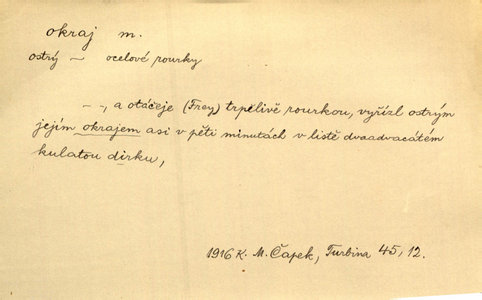 okraj m.
ostrý — ocelové rourky
– –, a otáčeje (Frey) trpělivě rourkou, vyřízl ostrým
jejím okrajem asi v pěti minutách v listě dvaadvacátém
kulatou dirku,
1916 K. M. Čapek, Turbina 45, 12.